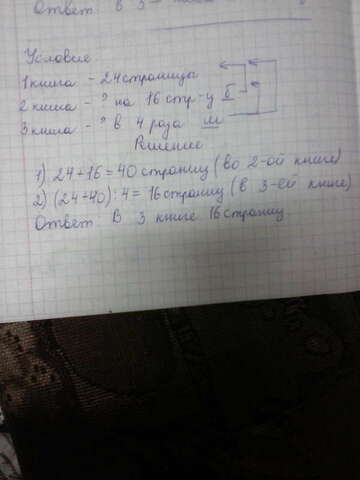 Ответ: В 3
Условие
1 книга - 24 страницы
2 книга - ? на 16 стр-у Б
3 книга - ? в 4 раза м
Решение
1) 24+16=40 страниц (во 2-ой книге)
2) (24+40):4=16 страниц (в 3-ей книге)
Ответ: В 3 книге 16 страниц